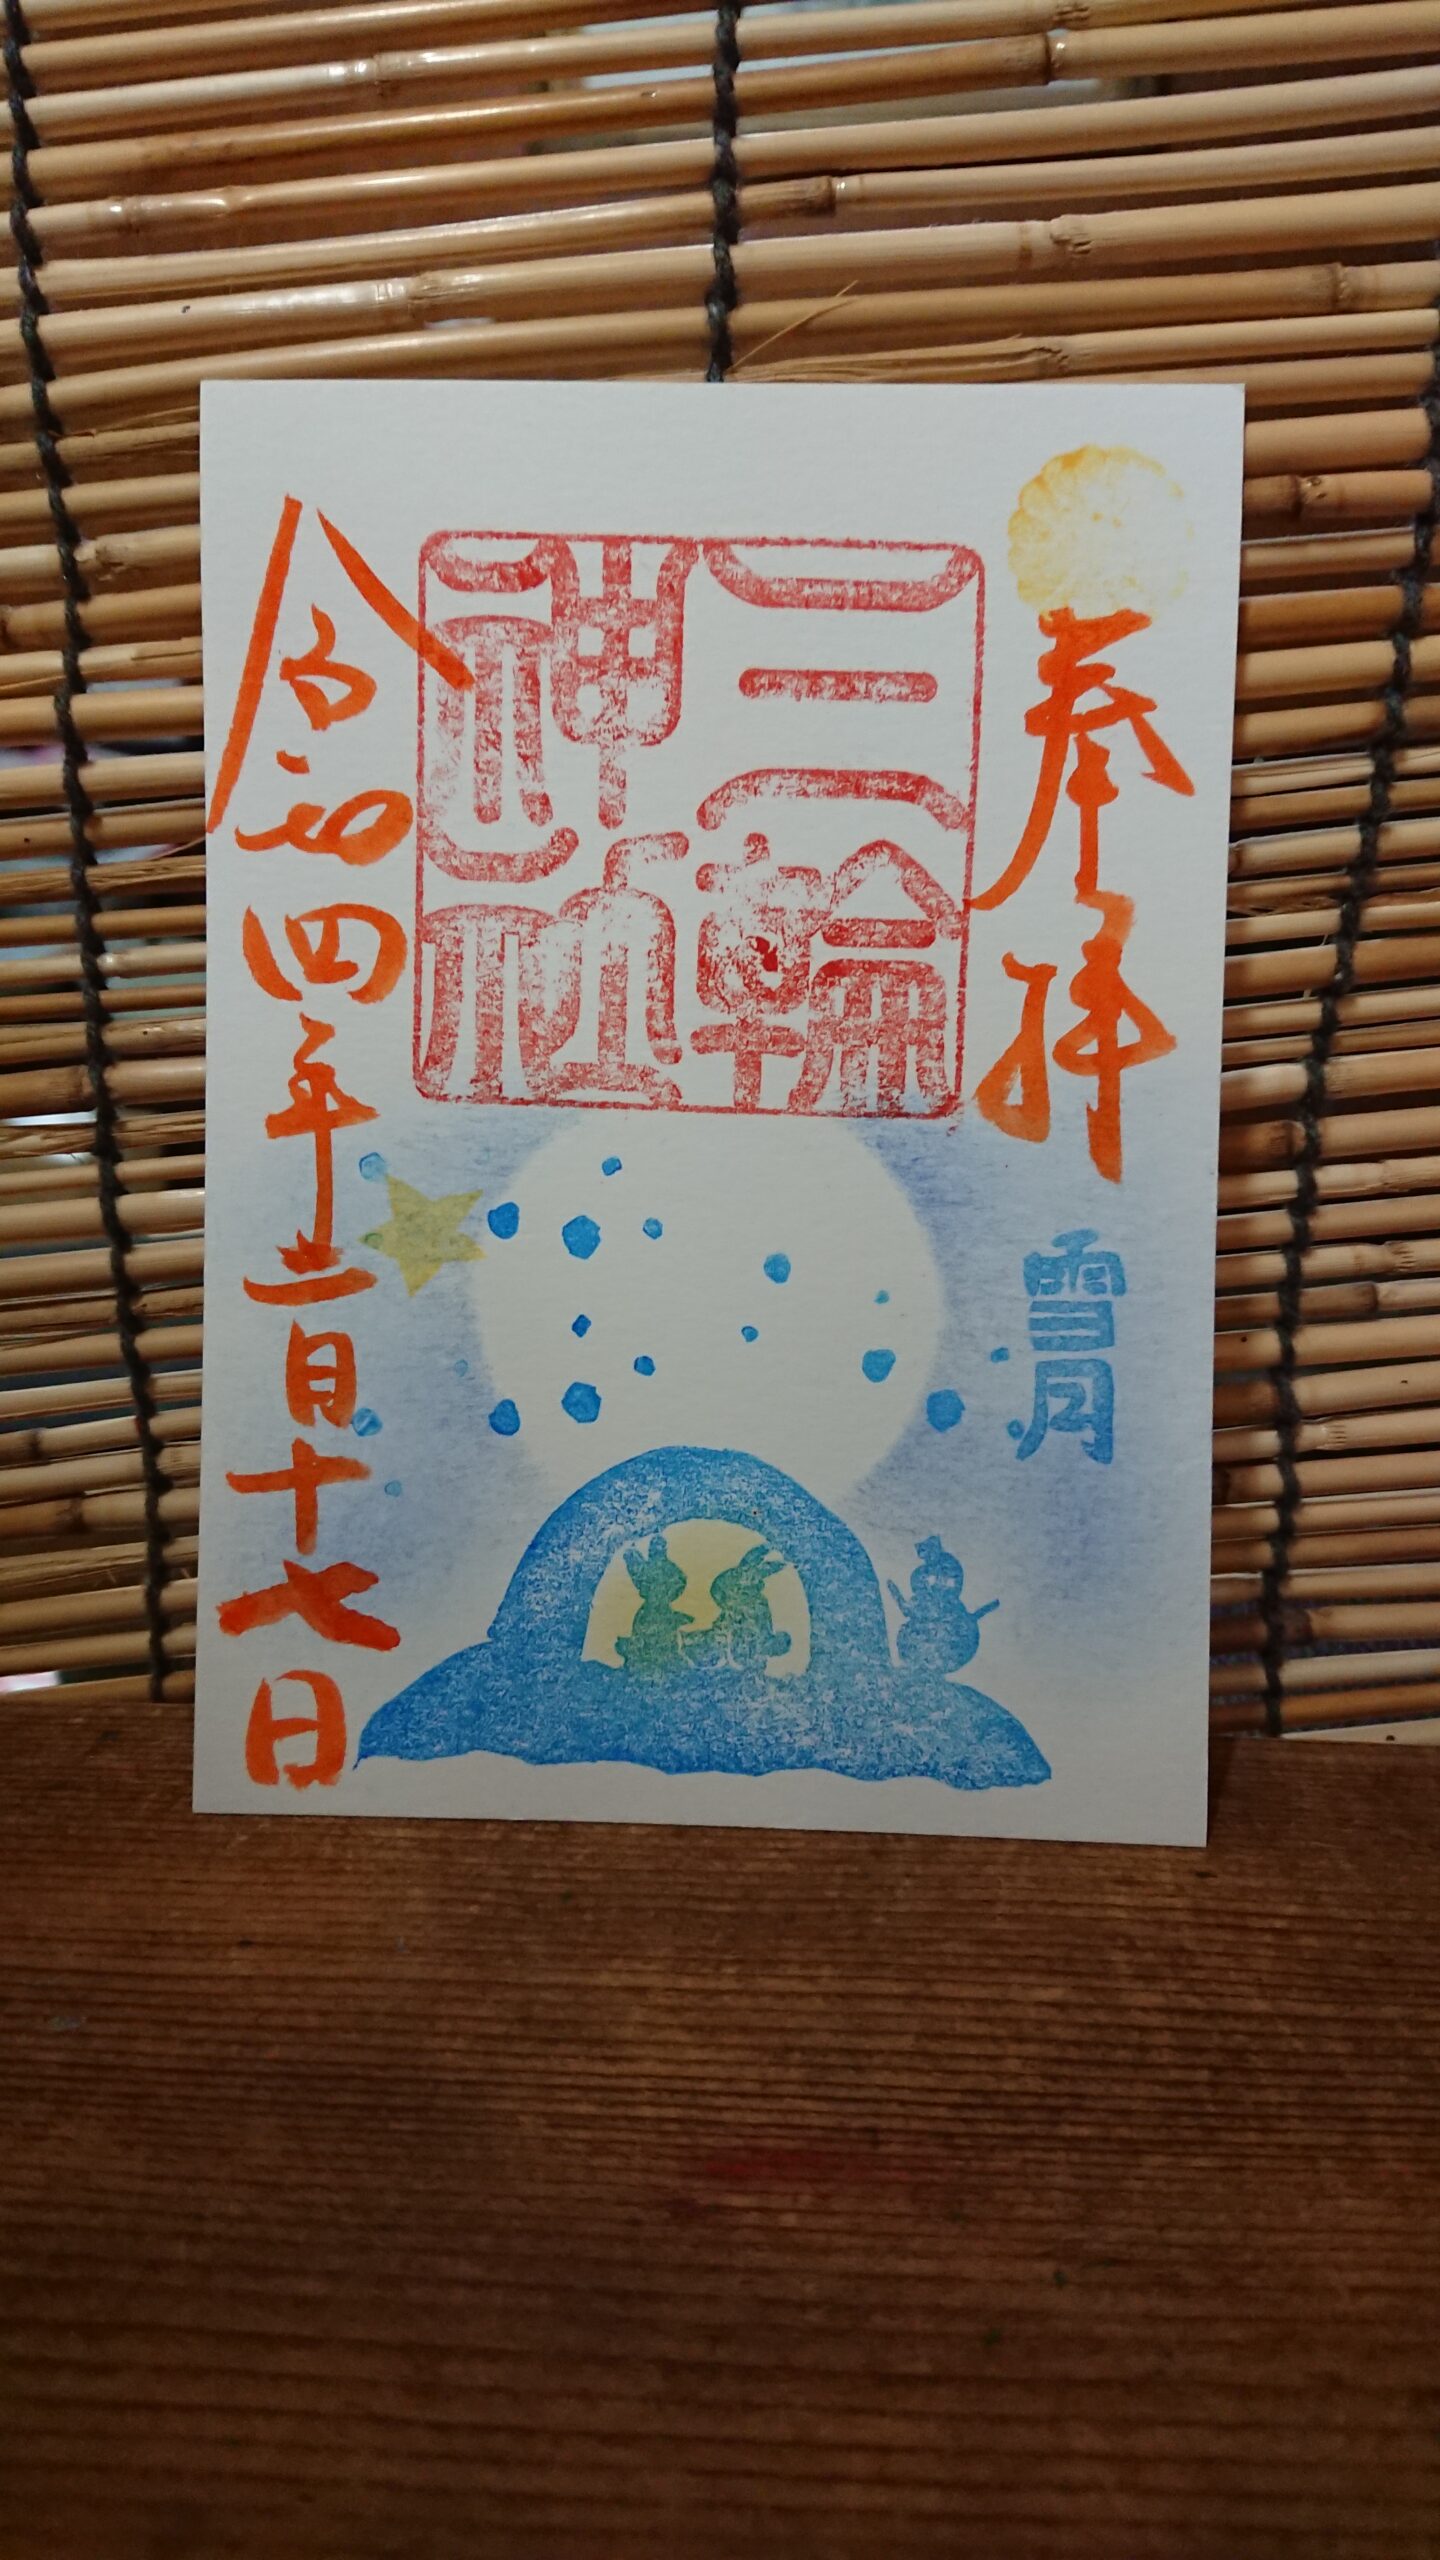 奉拝
雪月
三輪
神社
令和四年二月十七日